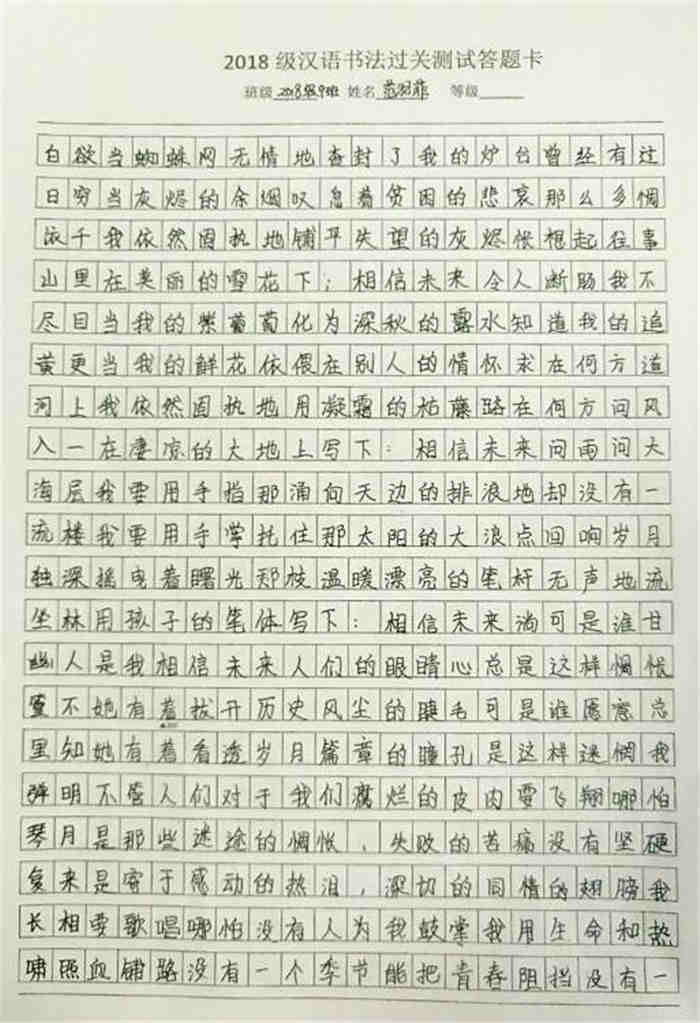 2018级汉语书法过关测试答题卡
班级 2018级9班 姓名 范羽菲 等级
白欲当蜘蛛网无情地查封了我的炉台曾经有过
日穷当灰烬的余烟叹息着贫困的悲哀那么多惆
依千我依然固执地铺平失望的灰烬怅想起往事
山里在美丽的雪花下；相信未来令人断肠我不
尽目当我的紫葡萄化为深秋的露水知道我的追
黄更当我的鲜花依偎在别人的情怀求在何方道
河上我依然固执地用凝霜的枯藤路在何方问风
入一在凄凉的大地上写下：相信未来问雨问大
海层我要用手指那涌向天边的排浪地却没有一
流楼我要用手掌托住那太阳的大浪点回响岁月
独深摇曳着曙光那枝温暖漂亮的笔杆无声地流
坐林用孩子的笔体写下：相信未来淌可是谁甘
幽人是我相信未来人们的眼睛心总是这样惆怅
篁不她有着拔开历史风尘的睫毛可是谁愿意总
里知她有着看透岁月篇章的瞳孔是这样迷惘我
弹明不管人们对于我们腐烂的皮肉要飞翔哪怕
琴月是那些迷途的惆怅，失败的苦痛没有坚硬
复来是寄于感动的热泪，深切的同情的翅膀我
长相要歌唱哪怕没有人为我鼓掌我用生命和热
啸照血铺路没有一个季节能把青春阻挡没有一